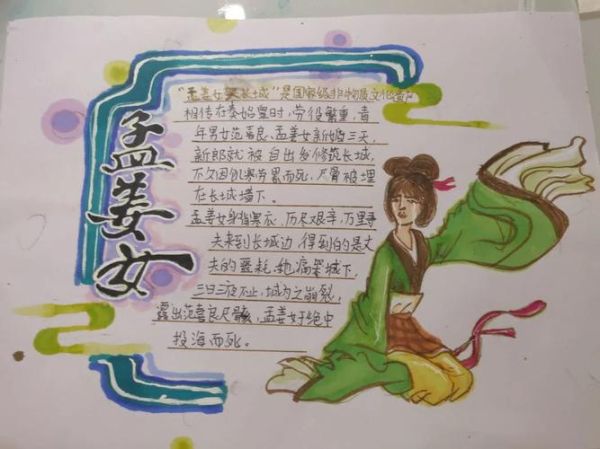 孟姜女
"孟姜女哭长城"是国家级非物质文化遗产
相传在秦始皇时,劳役繁重,青
年男女范喜良、孟姜女新婚三天,
新郎就被自出发修筑长城,
不久因饥寒劳累而死,尸骨被埋
在长城墙下。
孟姜女身背寒衣、历尽艰辛,万里寻
夫来到长城边,得到的是丈
夫的噩耗。她痛哭城下,
三日三夜不止,城为之崩裂,
露出范喜良尸骸,孟姜女于绝中
投海而死。